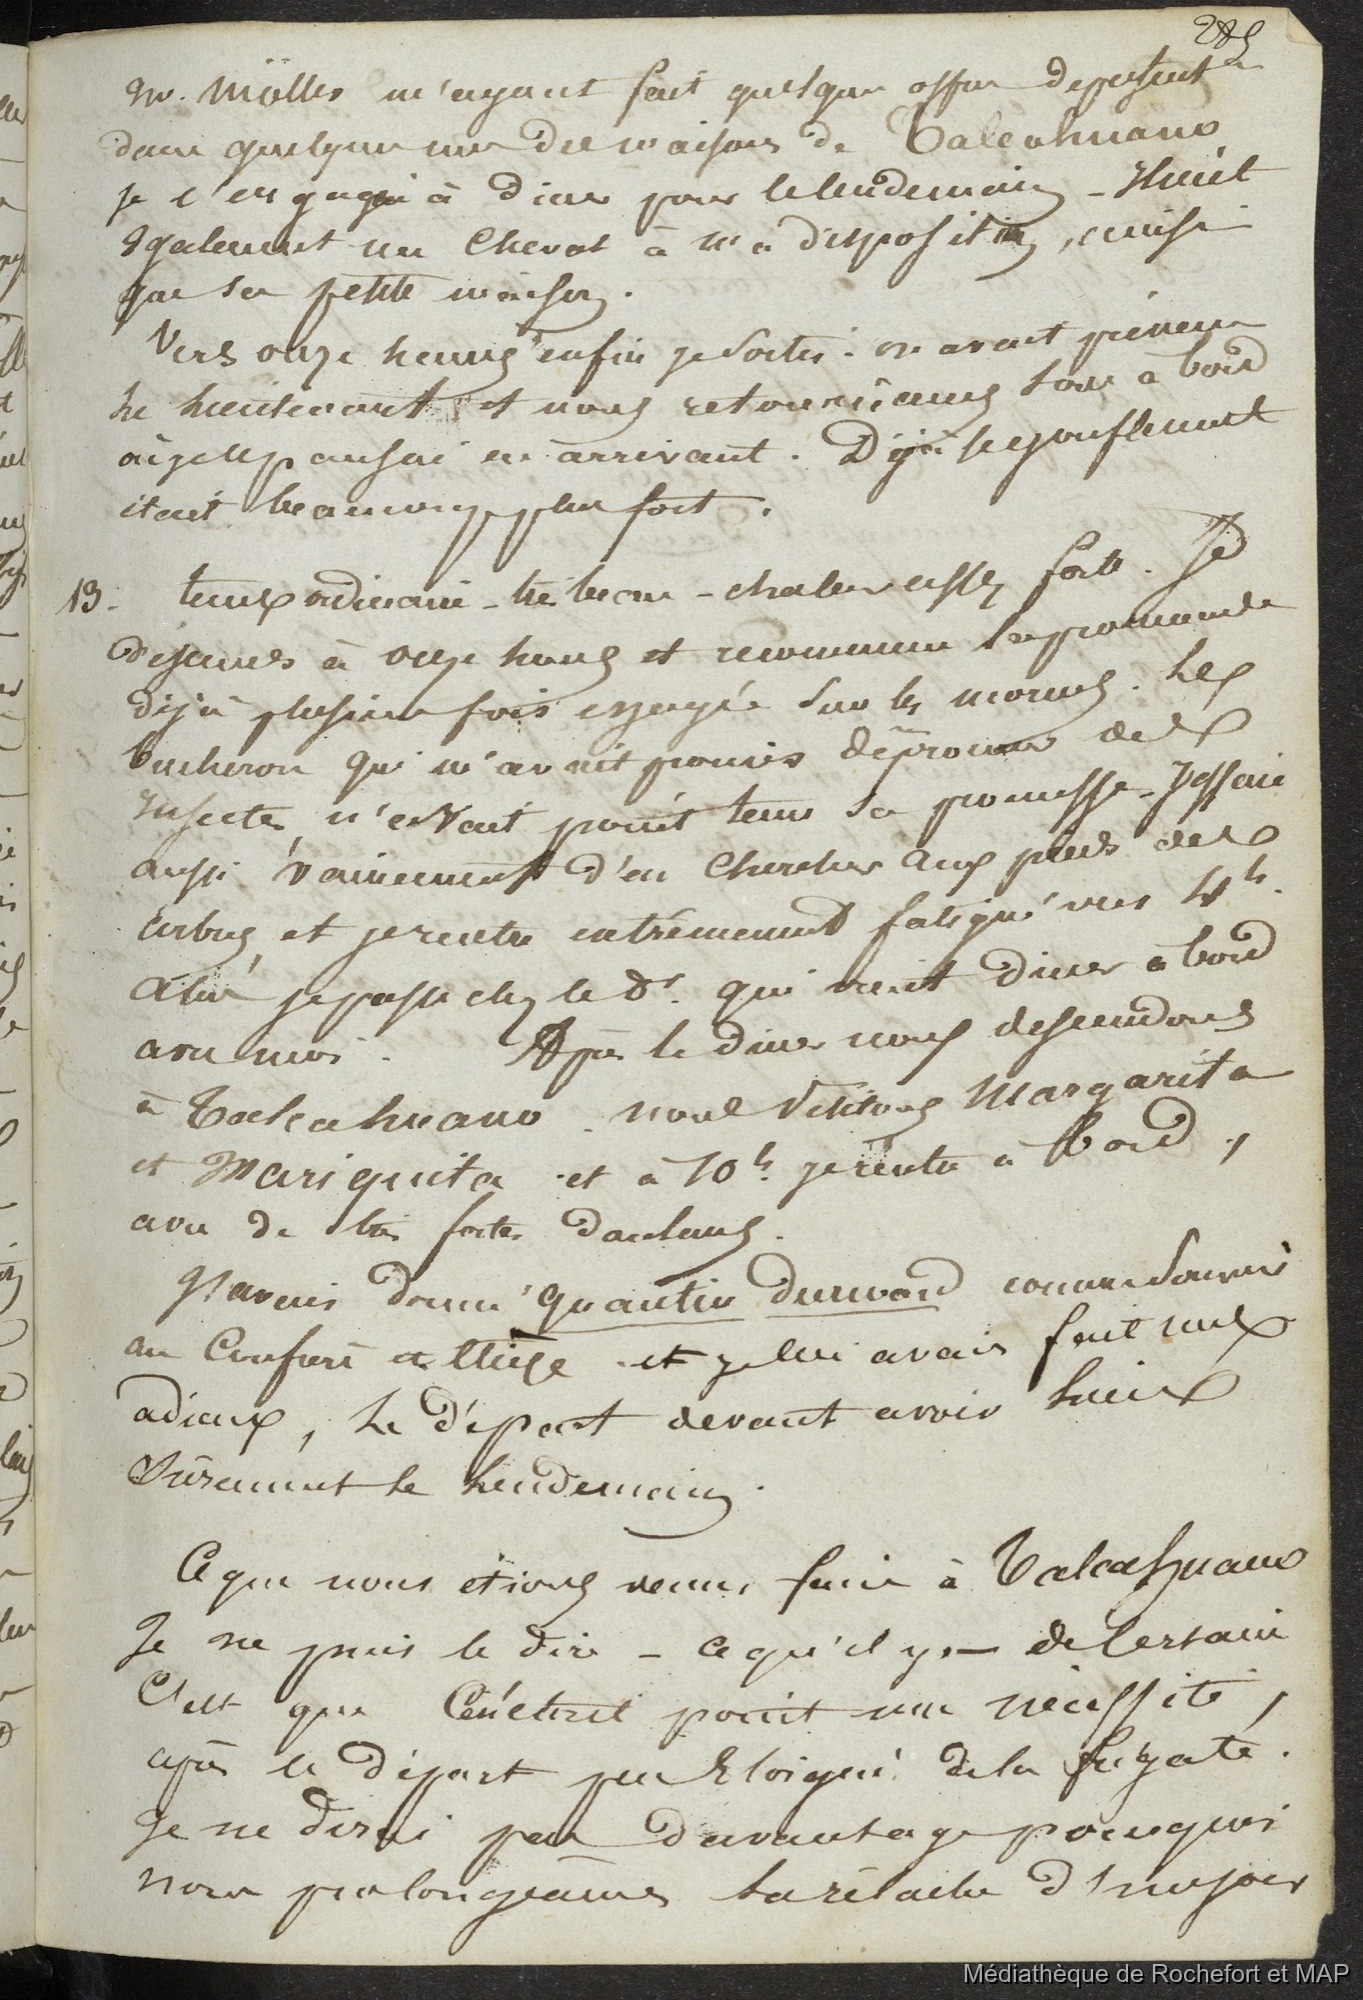 285
M. Möller m'ayant fait quelque offre
dans quelque une des maisons de Talcahuano
je l'engageai à diner pour le lendemain - Il met
également un cheval à ma disposition, ainsi
que sa petite maison.
Vers onze heures enfin je sortis. on avait prévenu
le lieutenant et nous retournâmes tous à bord
où je le pansai en arrivant. Déjà le gonflement
était beaucoup plus fort.
13. temps ordinaire - très beau - chaleur assez forte. Je
dejeunes à onze heures et recommence la promenade
déjà plusieurs fois essayée sur les mornes. Le
bucheron qui m'avait promis de
insectes n'avait point tenu sa promesse - J'essaie
aussi vainement d'en chercher aux pieds des
arbres et je rentre extrémement fatigué vers 4h.
je passe chez le Dr. qui vient diner à bord
avec moi. Après le diner nous descendons
à Talcahuano. nous visitons Margarita
et Mariquita et à 10h. je rentre à bord,
avec de très fortes douleurs.
J'avais donné Quantin durward comme souvenir
au confrère et je lui avais fait mes
adieux, le départ devant avoir lieu
sûrement le lendemain.
Ce que nous étions venus faire à Talcahuano
Je ne puis le dire - ce qu'il y a de certain
C'est que Ce n'était point une nécessité,
après le départ peu Eloigné de la frégate.
Je ne dirai pas davantage pourquoi
nous prolongeâmes la relâche d'un jour